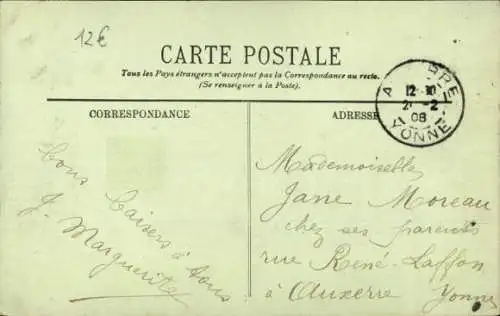 12€
CARTE POSTALE
Tous les Pays étrangers n'acceptent pas la Correspondance au recto.
(Se renseigner à la Poste).
CORRESPONDANCE
ADRESSE
12
2 -2
08
YONNE
Bons
baisers à tous
J. Marguerite
Mademoiselle
Jane Moreau
chez ses parents
rue René-Laffon
à Auxerre Yonne